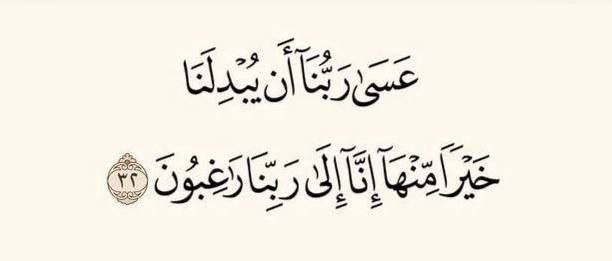 عَسَىٰ رَبُّنَآ أَن يُبْدِلَنَا
خَيْرًا مِّنْهَآ إِنَّآ إِلَىٰ رَبِّنَا رَٰغِبُونَ ٣٢